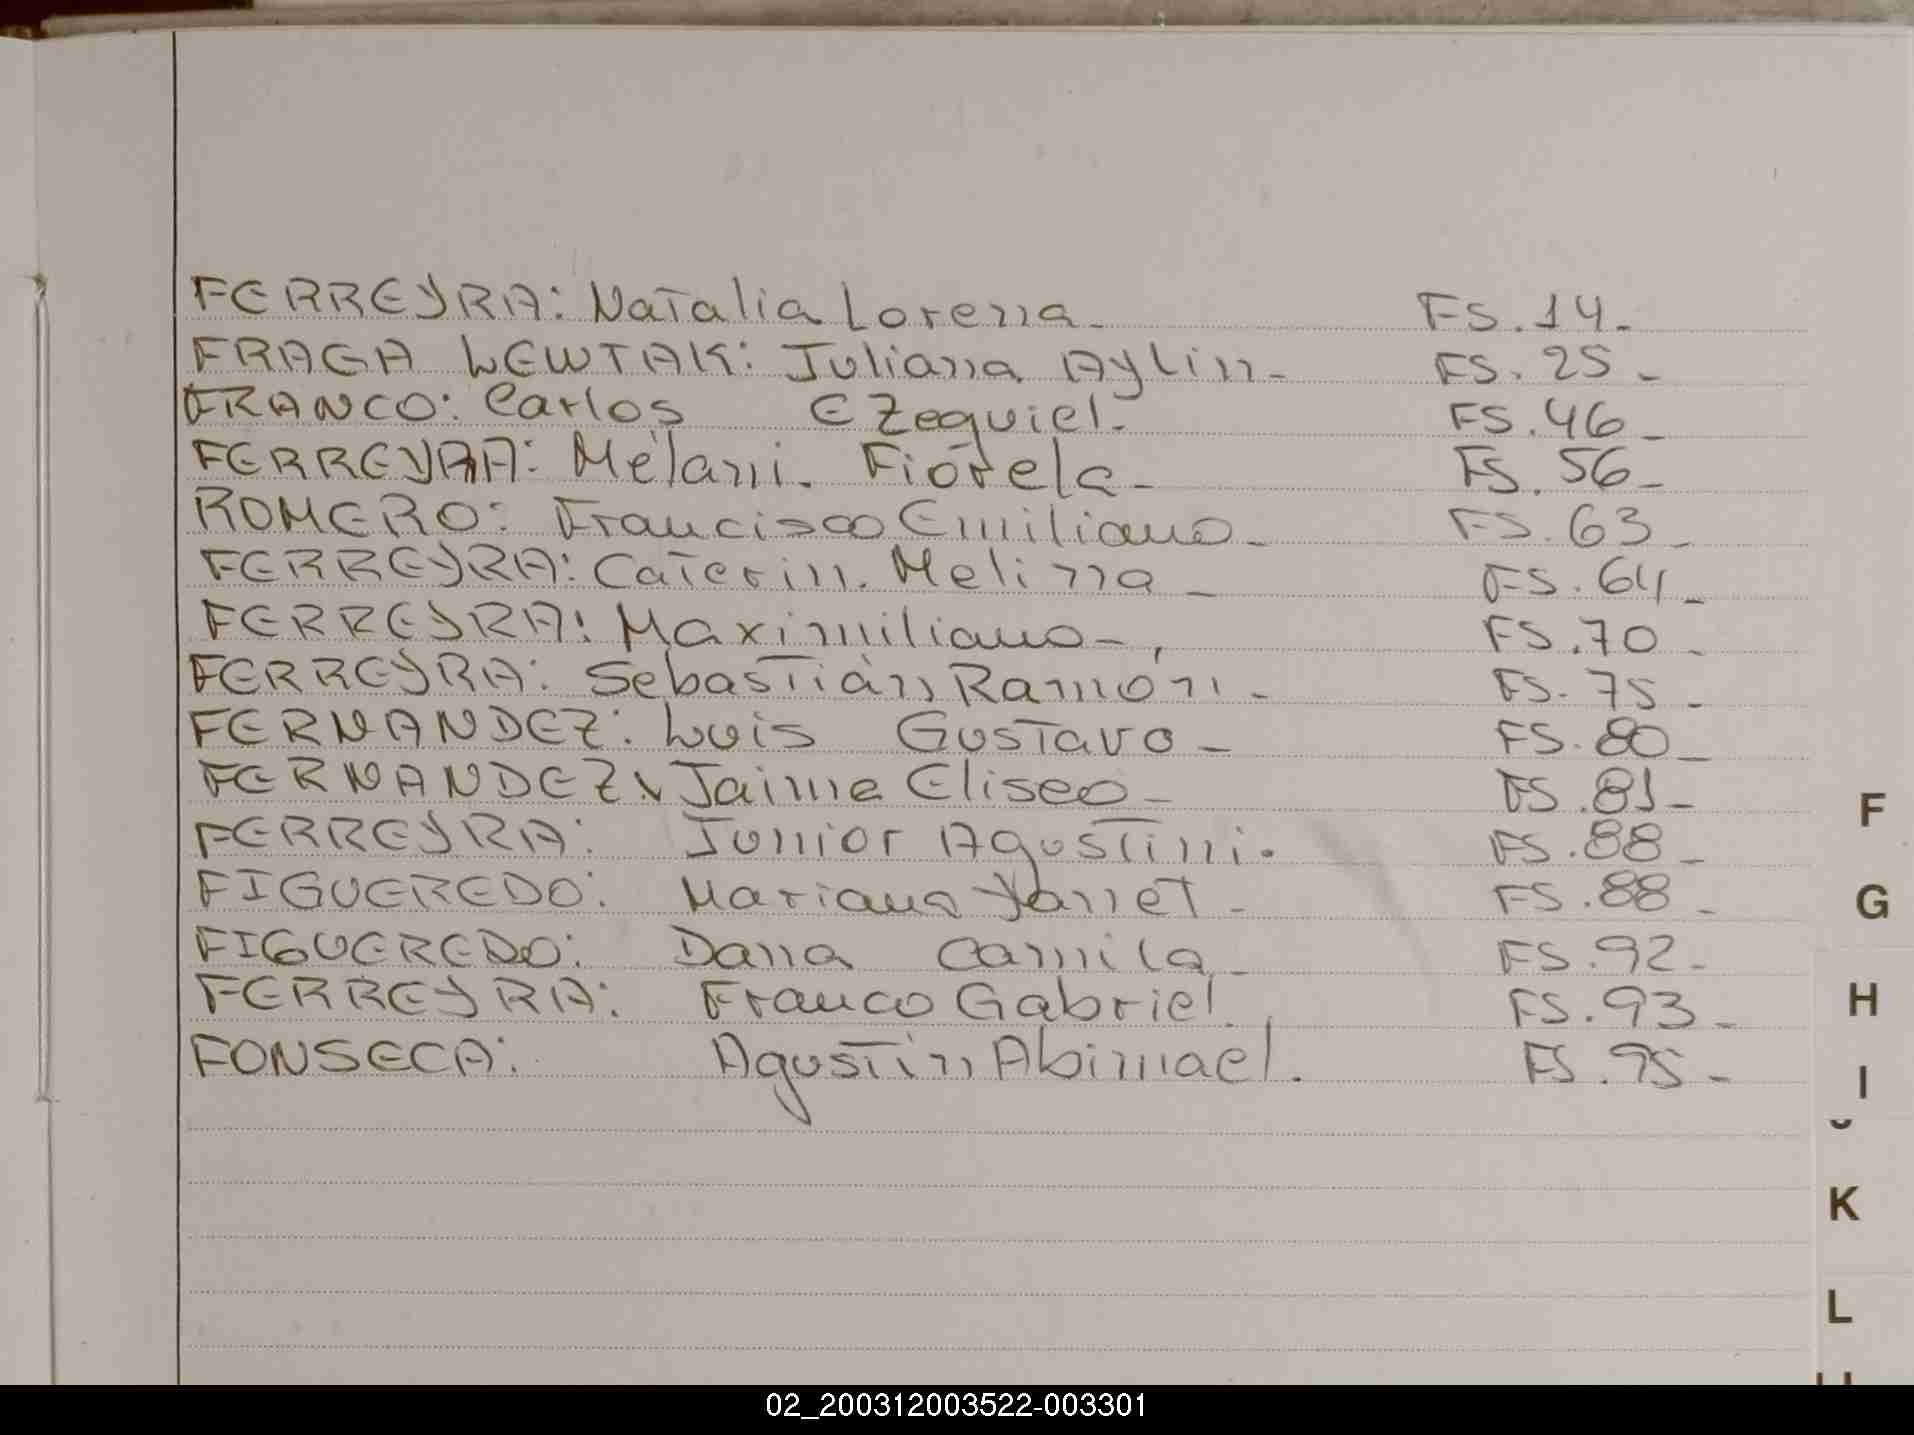 FERREYRA: Natalia Lorena- FS. 14-
FRAGA LEWTAK: Juliana Aylin- FS. 25-
FRANCO: Carlos EZequiel- FS. 46-
FERREYRA: Melani. Fiorela- FS. 56-
ROMERO: Francisco Emiliano- FS. 63-
FERREYRA: Caterin. Melina- FS. 64-
FERREYRA: Maximiliano- FS. 70-
FERREYRA: Sebastián Ramón- FS. 75-
FERNANDEZ: Luis Gustavo- FS. 80-
FERNANDEZ: Jaime Eliseo- FS. 81-
FERREYRA: Junior Agustin. FS. 88-
FIGUEREDO: Mariana Yanet- FS. 88-
FIGUEREDO: Dana Camila- FS. 92-
FERREYRA: Franco Gabriel. FS. 93-
FONSECA: Agustin Abimael. FS. 95-
F
G
H
I
K
L
02_200312003522-003301